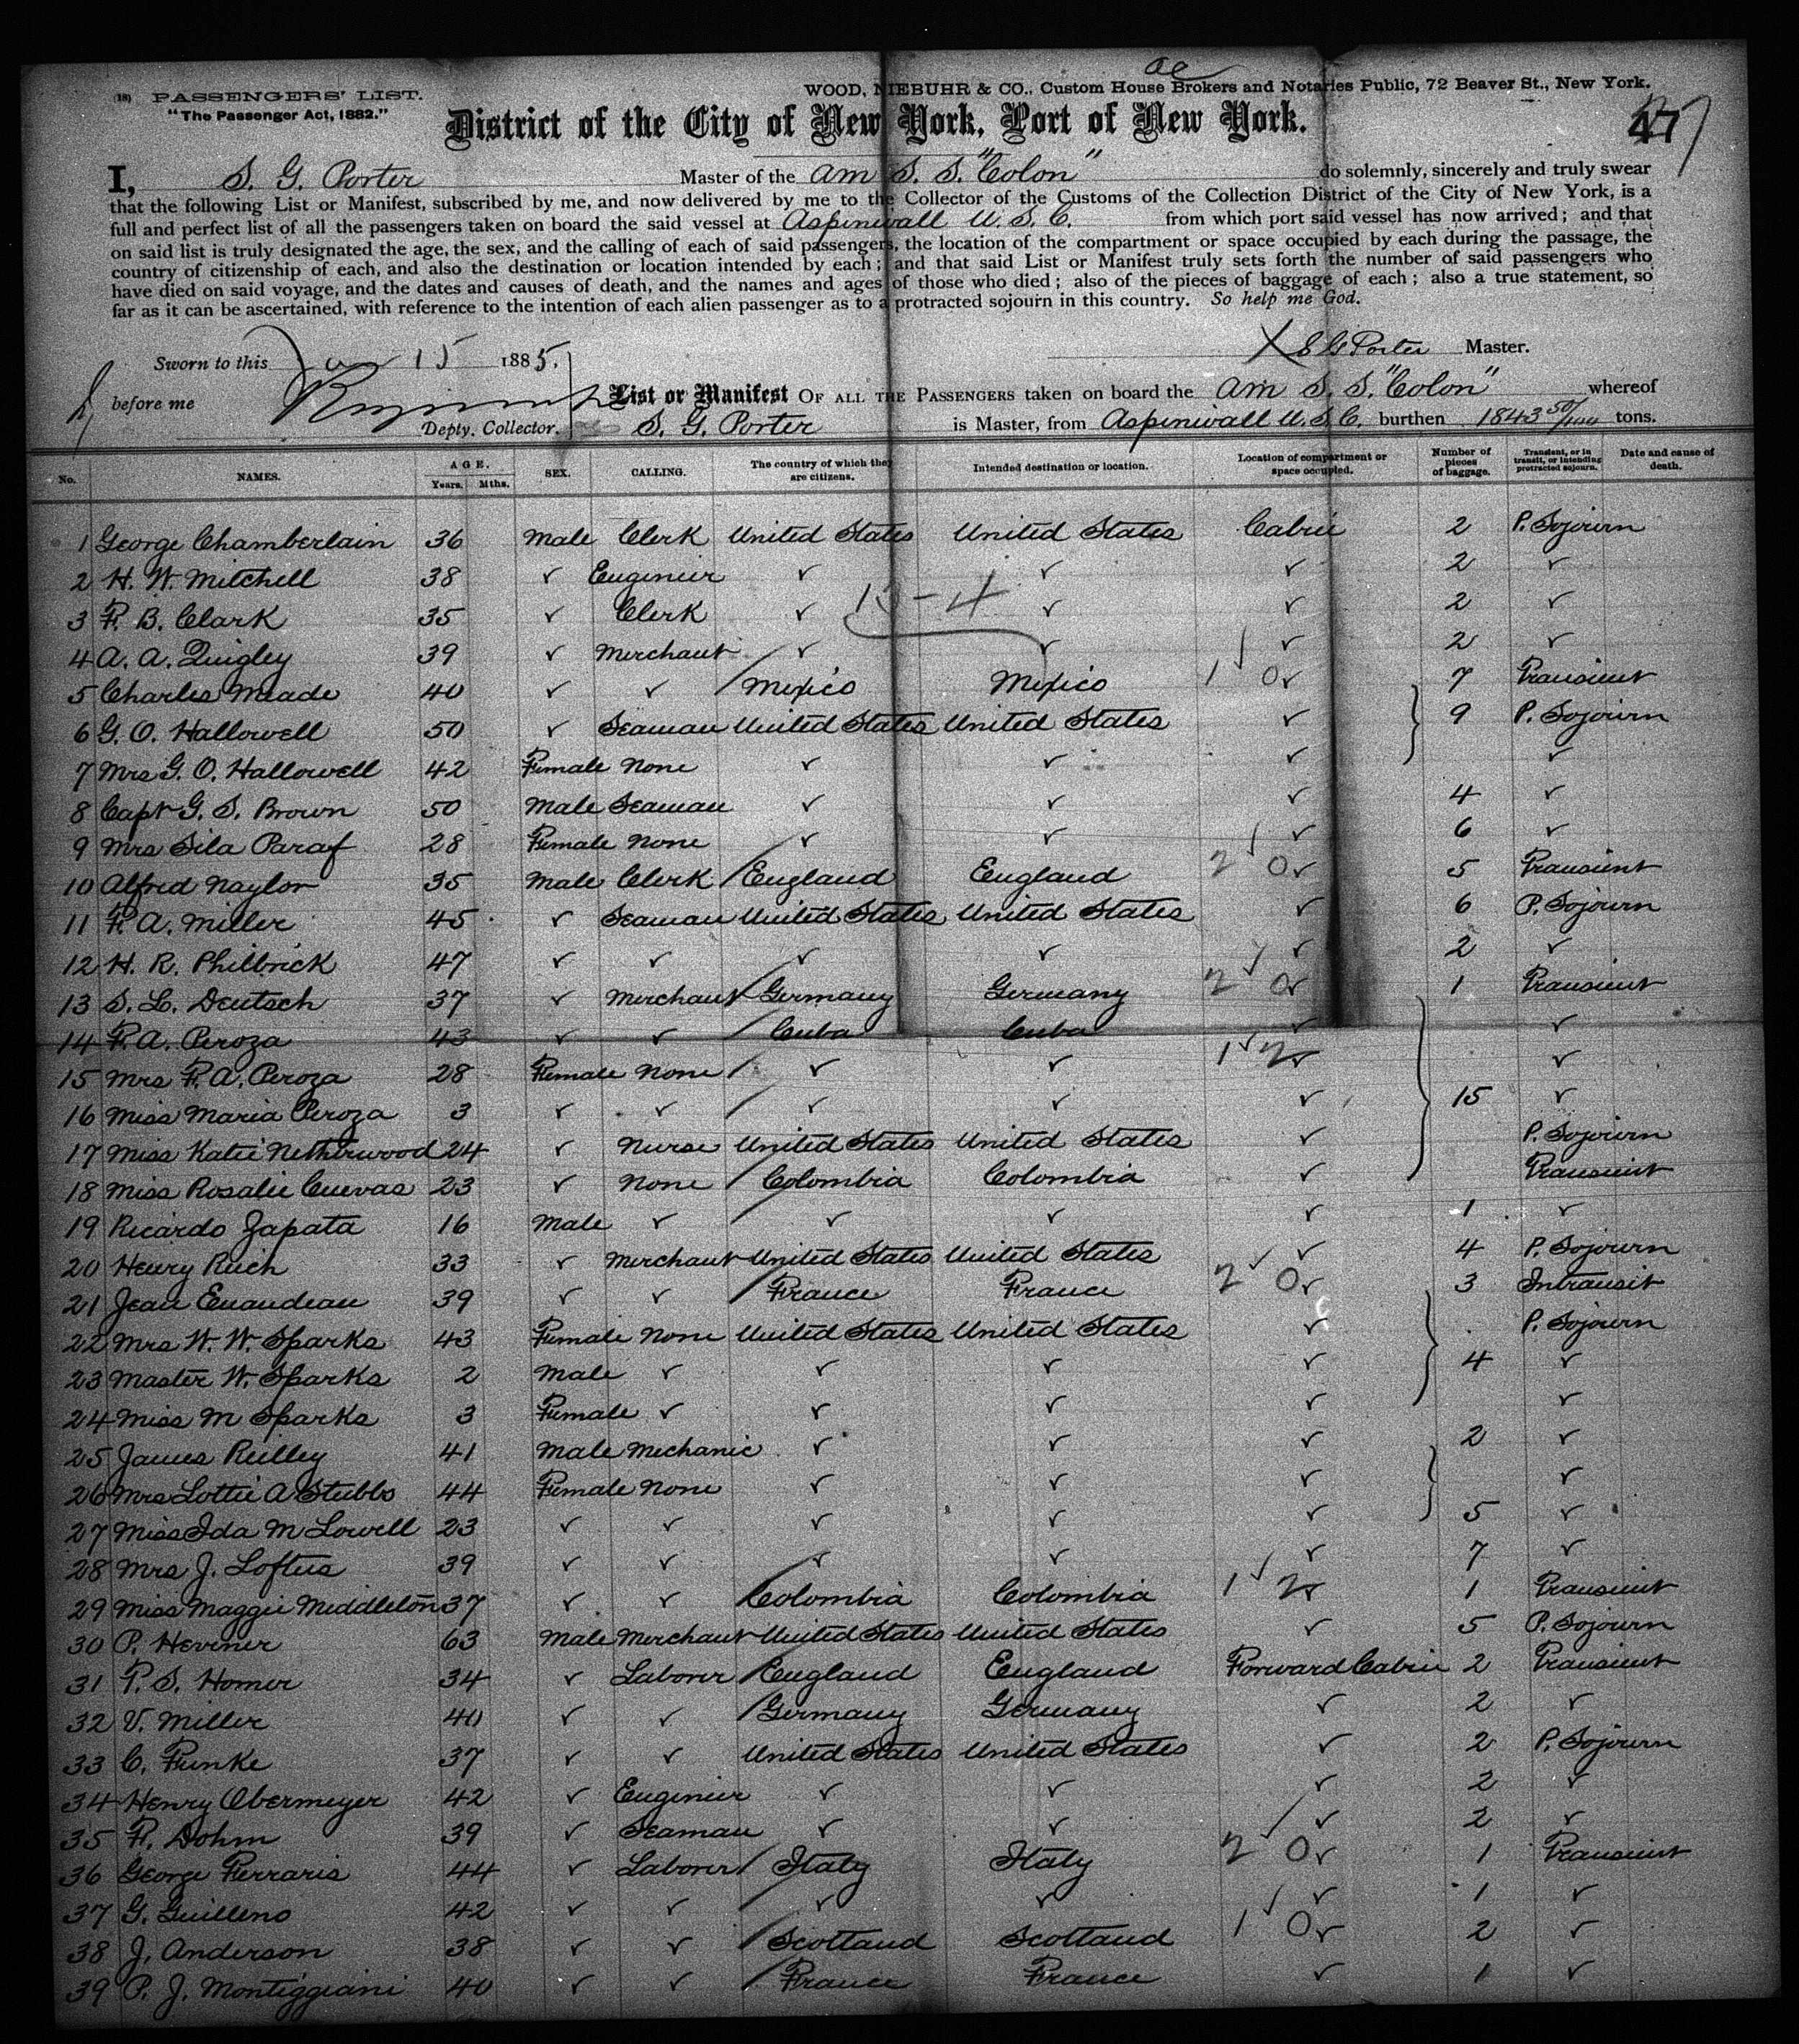 ac
(18) PASSENGERS' LIST. WOOD, NIEBUHR & CO., Custom House Brokers and Notaries Public, 72 Beaver St., New York.
"The Passenger Act, 1882."
District of the City of New York, Port of New York.
47
I, S. G. Porter Master of the Am S. S. "Colon" do solemnly, sincerely and truly swear
that the following List or Manifest, subscribed by me, and now delivered by me to the Collector of the Customs of the Collection District of the City of New York, is a
full and perfect list of all the passengers taken on board the said vessel at Aspinwall U. S. C. from which port said vessel has now arrived; and that
on said list is truly designated the age, the sex, and the calling of each of said passengers, the location of the compartment or space occupied by each during the passage, the
country of citizenship of each, and also the destination or location intended by each; and that said List or Manifest truly sets forth the number of said passengers who
have died on said voyage, and the dates and causes of death, and the names and ages of those who died; also of the pieces of baggage of each; also a true statement, so
far as it can be ascertained, with reference to the intention of each alien passenger as to a protracted sojourn in this country. So help me God.
Sworn to this 15 1885. X S G Porter Master.
before me List or Manifest OF ALL THE PASSENGERS taken on board the Am S. S. "Colon" whereof
Depty. Collector. S. G. Porter is Master, from Aspinwall U. S. C. burthen 1843 50/100 tons.
No. NAMES. AGE. Years. Mths. SEX. CALLING. The country of which they are citizens. Intended destination or location. Location of compartment or space occupied. Number of pieces of baggage. Transient, or in transit, or intending protracted sojourn. Date and cause of death.
1 George Chamberlain 36 Male Clerk United States United States Cabin 2 P. Sojourn
2 H. W. Mitchell 38 ✓ Engineer ✓ ✓ ✓ 2 ✓
3 F. B. Clark 35 ✓ Clerk ✓ 13-4 ✓ ✓ 2 ✓
4 A. A. Quigley 39 ✓ Merchant ✓ ✓ ✓ 2 ✓
5 Charles Meade 40 ✓ ✓ Mexico Mexico 1 0 ✓ 7 Transient
6 G. O. Hallowell 50 ✓ Seaman United States United States ✓ 9 P. Sojourn
7 Mrs G. O. Hallowell 42 Female None ✓ ✓ ✓ ✓
8 Capt G. S. Brown 50 Male Seaman ✓ ✓ ✓ 4 ✓
9 Mrs Sila Paraf 28 Female None ✓ ✓ ✓ 6 ✓
10 Alfred Naylor 35 Male Clerk England England 2 0 ✓ 5 Transient
11 F. A. Miller 45 ✓ Seaman United States United States ✓ 6 P. Sojourn
12 H. R. Philbrick 47 ✓ ✓ ✓ ✓ ✓ 2 ✓
13 S. L. Deutsch 37 ✓ Merchant Germany Germany 2 0 ✓ 1 Transient
14 F. A. Peroza 43 ✓ ✓ Cuba Cuba ✓ ✓
15 Mrs F. A. Peroza 28 Female None ✓ ✓ 1 2 ✓ ✓
16 Miss Maria Peroza 3 ✓ ✓ ✓ ✓ ✓ 15 ✓
17 Miss Katie Netherwood 24 ✓ Nurse United States United States ✓ P. Sojourn
18 Miss Rosalie Cuevas 23 ✓ None Colombia Colombia ✓ Transient
19 Ricardo Zapata 16 Male ✓ ✓ ✓ ✓ 1 ✓
20 Henry Reich 33 ✓ Merchant United States United States ✓ 4 P. Sojourn
21 Jean Enaudeau 39 ✓ ✓ France France 2 0 ✓ 3 Intransit
22 Mrs W. W. Sparks 43 Female None United States United States ✓ P. Sojourn
23 Master W. Sparks 2 Male ✓ ✓ ✓ ✓ 4 ✓
24 Miss M Sparks 3 Female ✓ ✓ ✓ ✓ ✓
25 James Reilley 41 Male Mechanic ✓ ✓ ✓ 2 ✓
26 Mrs Lottie A Stubbs 44 Female None ✓ ✓ ✓ ✓
27 Miss Ida M Lowell 23 ✓ ✓ ✓ ✓ ✓ 5 ✓
28 Mrs J. Loftus 39 ✓ ✓ ✓ ✓ ✓ 7 ✓
29 Miss Maggie Middleton 37 ✓ ✓ Colombia Colombia 1 2 ✓ 1 Transient
30 P. Hevner 63 Male Merchant United States United States ✓ 5 P. Sojourn
31 P. S. Homer 34 ✓ Laborer England England Forward Cabin 2 Transient
32 V. Miller 40 ✓ ✓ Germany Germany ✓ 2 ✓
33 C. Funke 37 ✓ ✓ United States United States ✓ 2 P. Sojourn
34 Henry Obermeyer 42 ✓ Engineer ✓ ✓ ✓ 2 ✓
35 F. Dohm 39 ✓ Seaman ✓ ✓ ✓ 2 ✓
36 George Ferraris 44 ✓ Laborer Italy Italy 2 0 ✓ 1 Transient
37 G. Guilleno 42 ✓ ✓ ✓ ✓ ✓ 1 ✓
38 J. Anderson 38 ✓ ✓ Scotland Scotland 1 0 ✓ 2 ✓
39 P. J. Montiggiani 40 ✓ ✓ France France ✓ 1 ✓